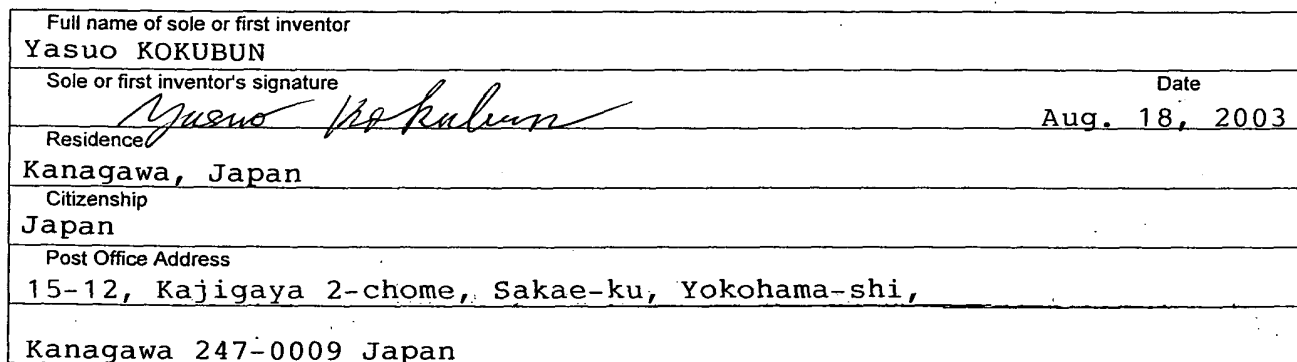 Full name of sole or first inventor
Yasuo KOKUBUN
Sole or first inventor's signature Date
Yasuo Kokubun Aug. 18, 2003
Residence
Kanagawa, Japan
Citizenship
Japan
Post Office Address
15-12, Kajigaya 2-chome, Sakae-ku, Yokohama-shi,
Kanagawa 247-0009 Japan